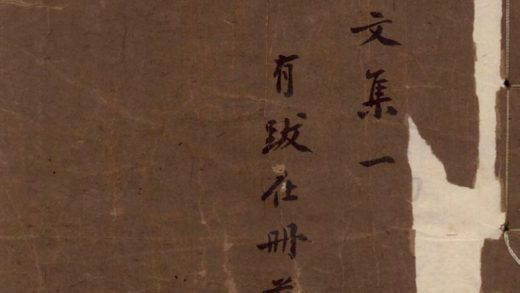 文集一
有跋在册